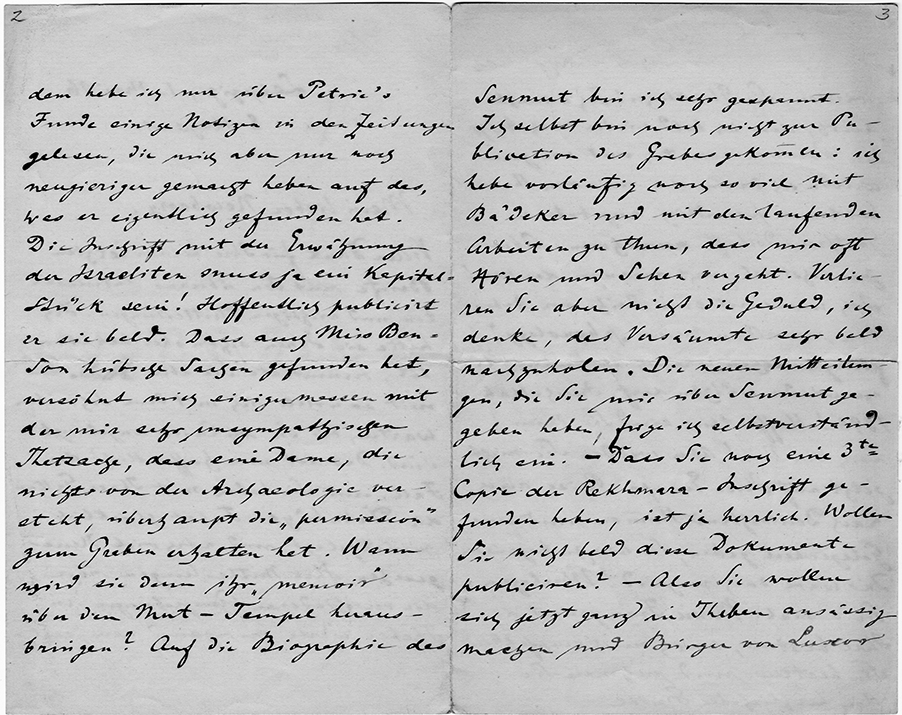 2
dem habe ich nur über Petrie's
Funde einige Notizen in den Zeitungen
gelesen, die mich aber nur noch
neugieriger gemacht haben auf das,
was er eigentlich gefunden hat.
Die Inschrift mit der Erwähnung
der Israeliten muss ja ein Kapital-
Stück sein! Hoffentlich publicirt
er sie bald. Dass auch Miss Ben-
son hübsche Sachen gefunden hat,
versöhnt mich einigermassen mit
der mir sehr unsympathischen
Thatsache, dass eine Dame, die
nichts von der Archaeologie ver-
steht, überhaupt die „permission"
zum Graben erhalten hat. Wann
wird sie denn ihr „memoir"
über den Mut-Tempel heraus-
bringen? Auf die Biographie des
3
Senmut bin ich sehr gespannt.
Ich selbst bin noch nicht zur Pu-
blication des Grabes gekommen: ich
habe vorläufig noch so viel mit
Bädeker und mit den laufenden
Arbeiten zu thun, dass mir oft
Hören und Sehen vergeht. Verlie-
ren Sie aber nicht die Geduld, ich
denke, das Versäumte sehr bald
nachzuholen. Die neuen Mitteilun-
gen, die Sie mir über Senmut ge-
geben haben, füge ich selbstverständ-
lich ein. – Dass Sie noch eine 3te
Copie der Rekhmara-Inschrift ge-
funden haben, ist ja herrlich. Wollen
Sie nicht bald diese Dokumente
publiciren? – Also Sie wollen
sich jetzt ganz in Theben ansässig
machen und Bürger von Luxor